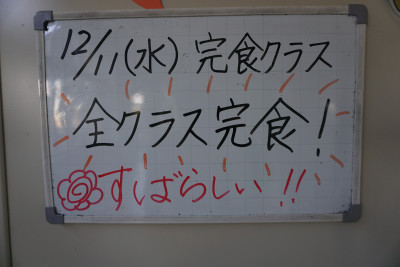 12/11(水) 完食クラス
全クラス完食!
すばらしい!!